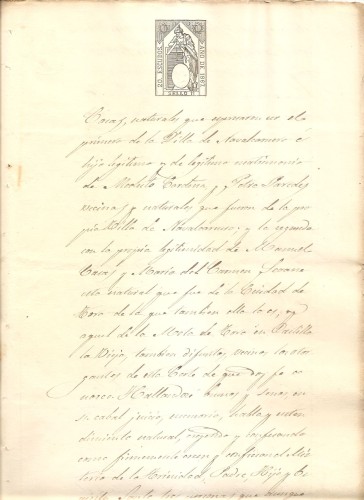 DOS ESCUDOS
AÑO DE 1869
Casas, naturales que espresaron ser el
primero de la Villa de Navalcarnero é
hijo legítimo y de legítimo matrimonio
de Modesto y Petra Paredes
vecinos y naturales que fueron de la pro
pia Villa de Navalcarnero, y la segunda
con la propia legitimidad de Manuel
Casas y María del Carmen
esta natural que fue de la Ciudad de
Toro de la que tambien ella lo es, y
aquel de la Mota de Toro en Castilla
la Vieja, tambien difuntos, vecinos los otor
gantes de esta Corte de que doy fe co
nozco. Hallandose buenos y sanos, en
su cabal juicio, memoria, habla y enten
dimiento natural, creyendo y confesando
como firmemente creen y confiesan el Mis
terio de la Trinidad, Padre, Hijo y Es
que aunque